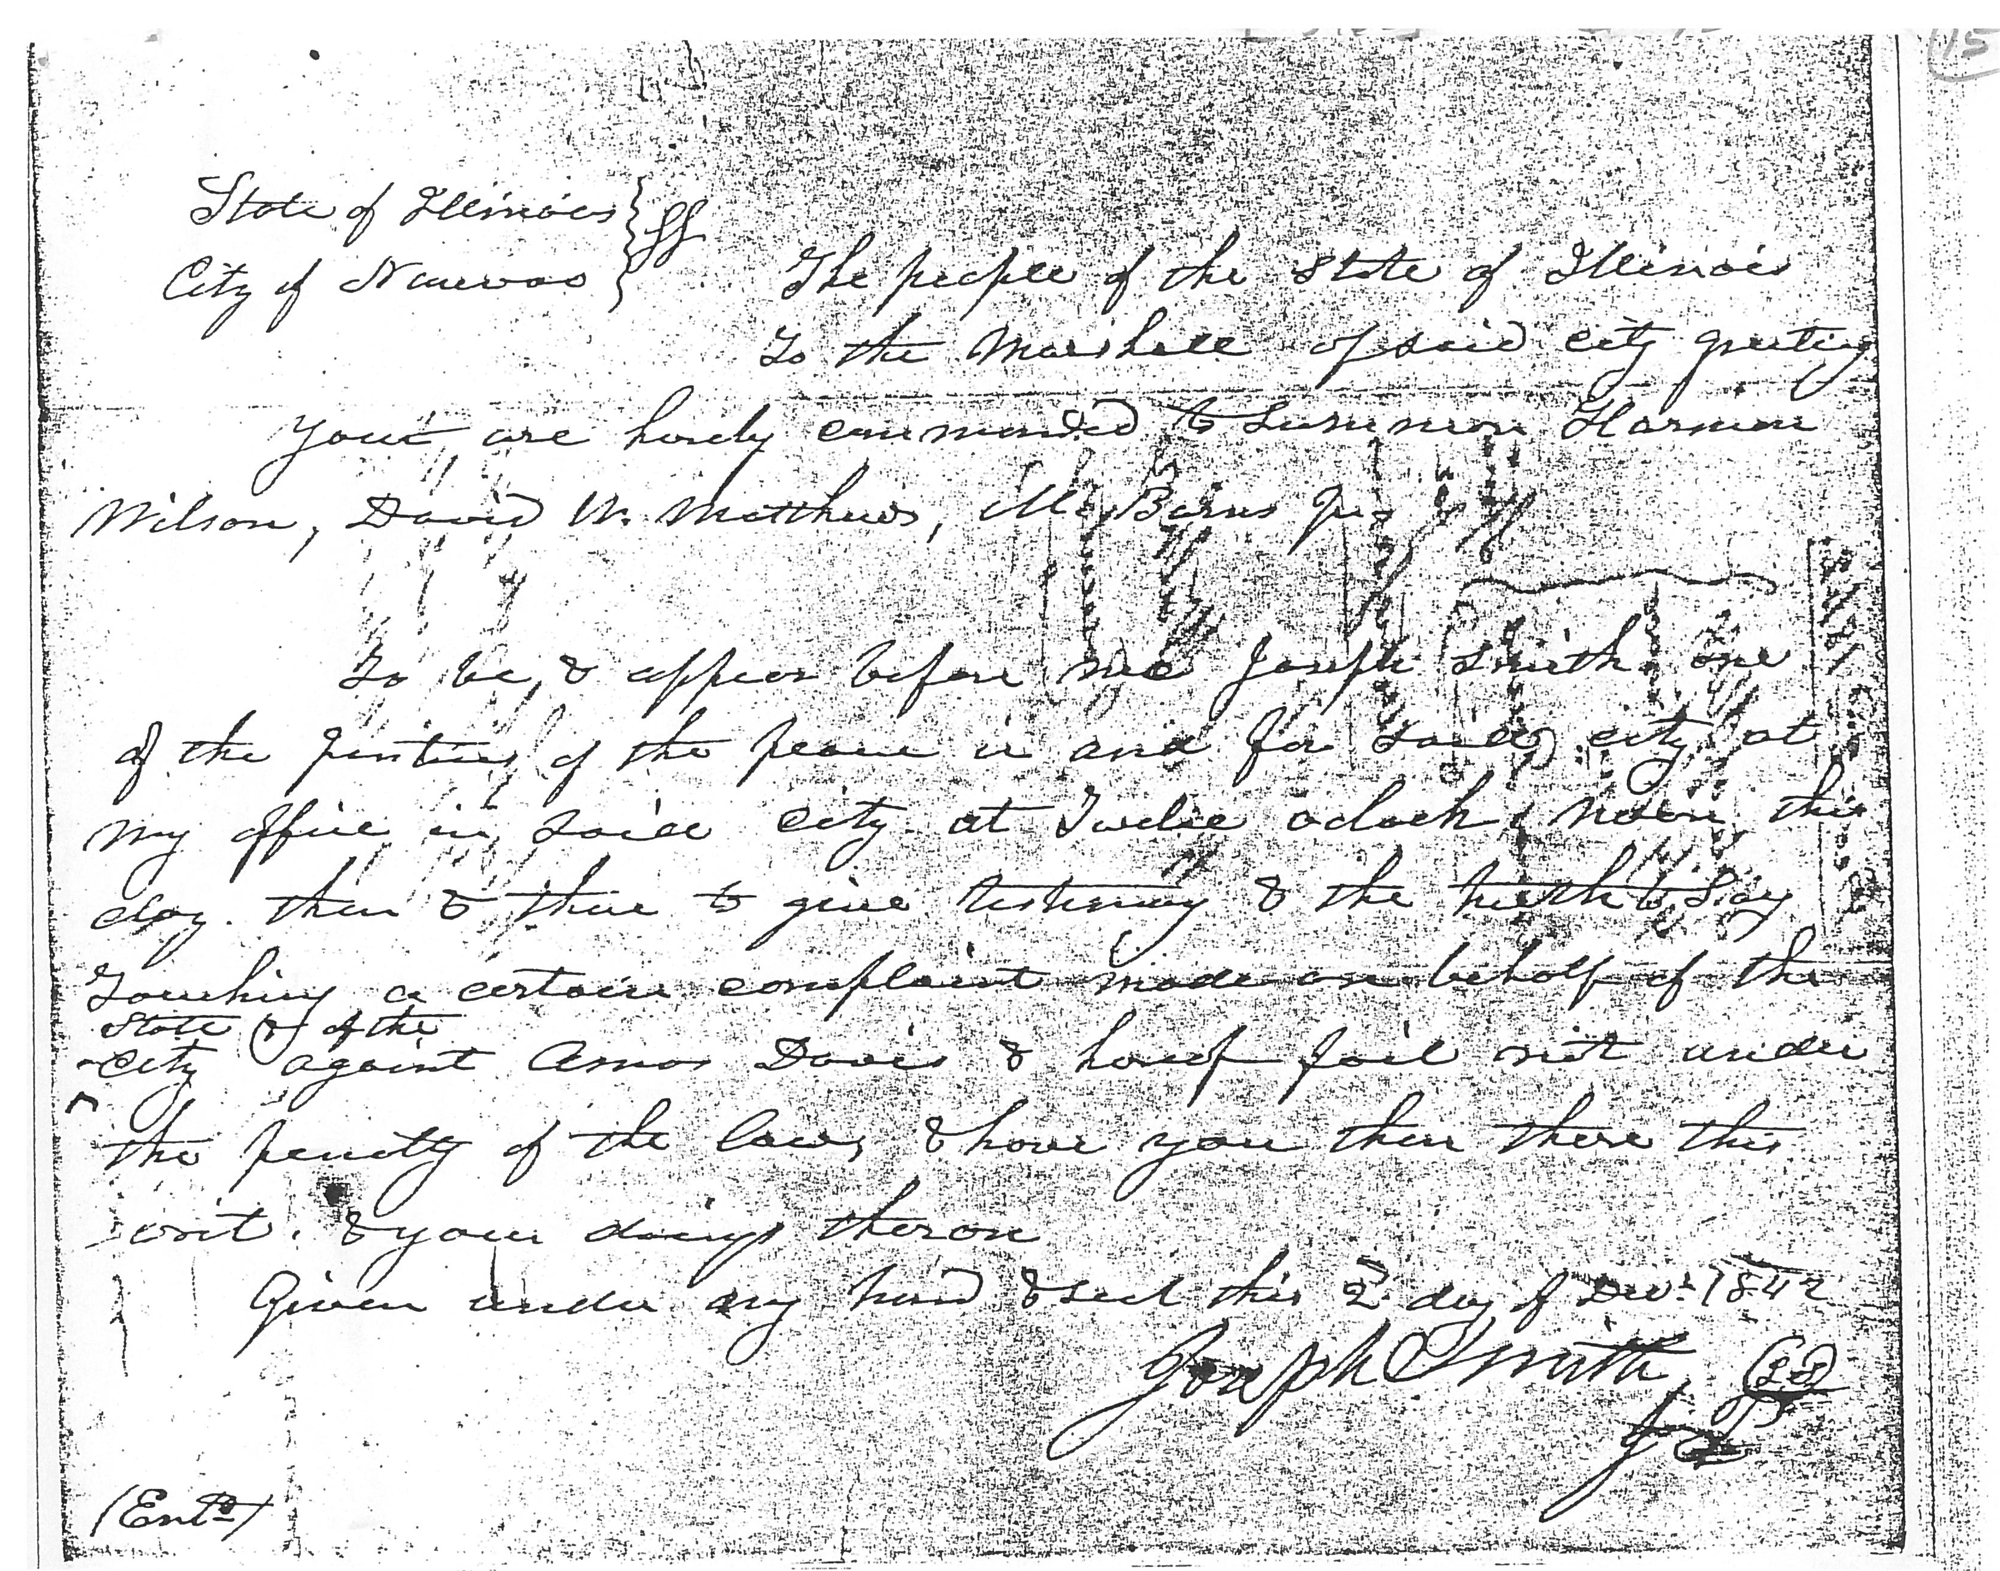 State of Illinois } ss
City of Nauvoo }
The people of the State of Illinois
To the Marshall of said city greeting
You are herby commanded to Summon Harmon
Wilson, David W. Matthews, Mc Barns Jr
To be, & appear before me Joseph Smith one
of the justices of the peace in and for said city at
my office in said city at Twelve oclock noon this
day. then & there to give testimony & the truth to Say
Touching a certain complaint made on behalf of the
State & of the
City against Amos Davis & hereof fail not under
the penalty of the law, & have you then there this
writ. & your doings theron
Given under my hand & seal this 2d day of Decr. 1842
Joseph Smith
J P
(Entd)
15